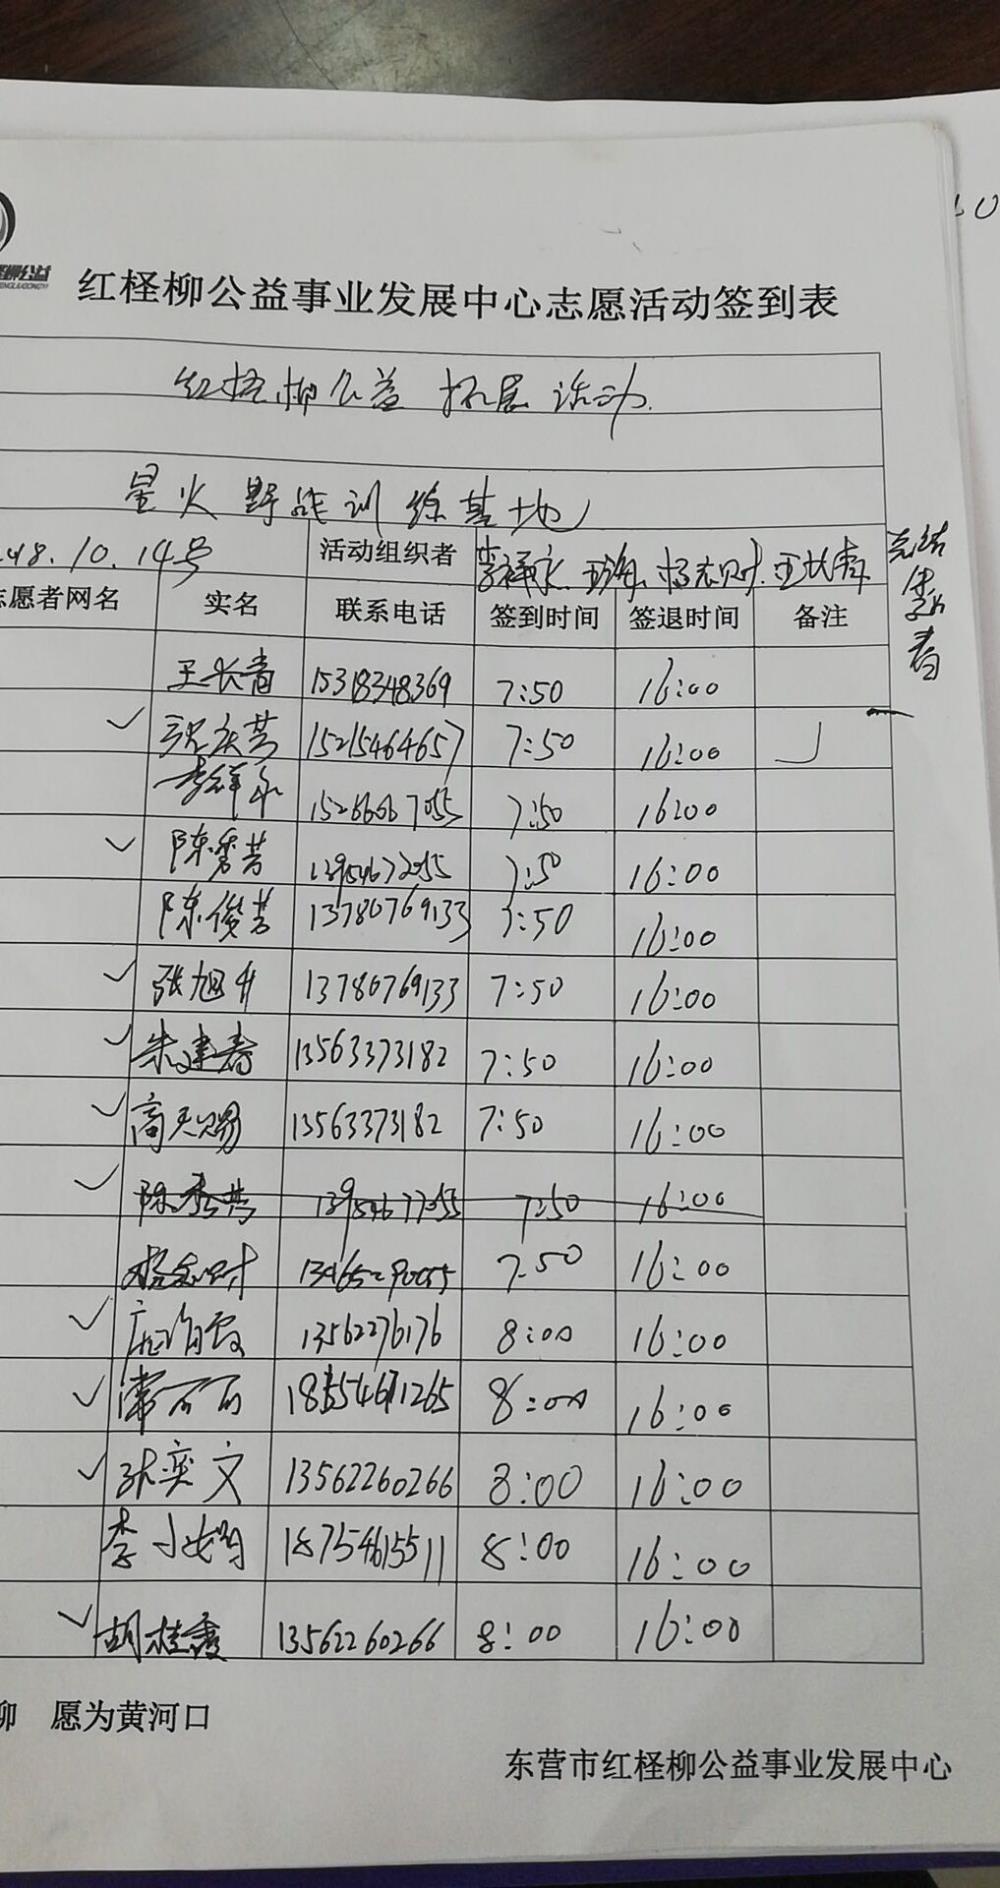 红柽柳公益事业发展中心志愿活动签到表
红柽柳公益 拓展活动
星火野战训练基地
10.14号 活动组织者 李祥永 王海 杨志财 王长青
志愿者网名 实名 联系电话 签到时间 签退时间 备注
王长青 15318348369 7:50 16:00
15215464657 7:50 16:00
李祥永 7:50 16:00
陈秀芳 13954677055 7:50 16:00
陈俊芳 13780769133 7:50 16:00
张旭升 13780769133 7:50 16:00
朱建春 13563373182 7:50 16:00
高天赐 13563373182 7:50 16:00
陈秀芳 13954677055 7:50 16:00
杨志财 7:50 16:00
13562276176 8:00 16:00
常丽丽 8:00 16:00
张奕文 13562260266 8:00 16:00
李小娟 18754615511 8:00 16:00
胡桂霞 13562260266 8:00 16:00
柳 愿为黄河口
东营市红柽柳公益事业发展中心